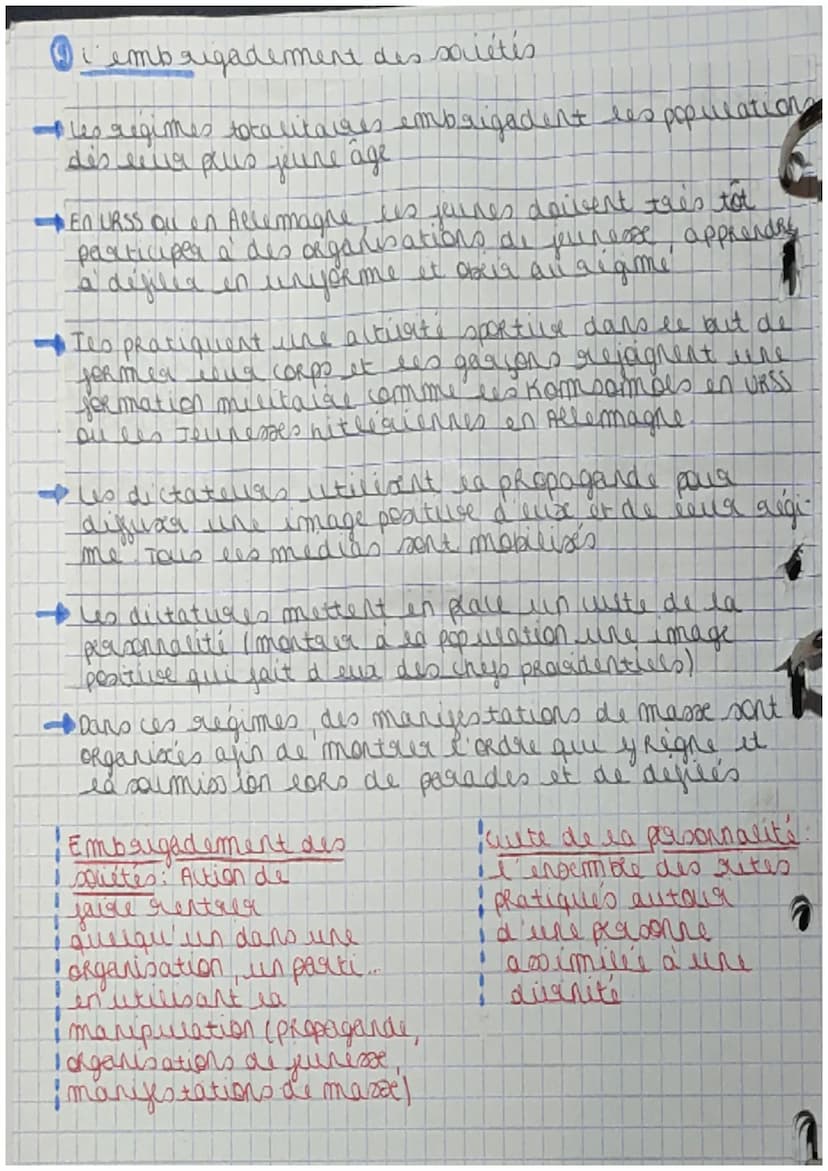 9 L'embrigadement des sociétés
→ Les régimes totalitaires embrigadent les populations
dès leur plus jeune âge
→ En URSS ou en Allemagne les jeunes doivent très tôt
participer à des organisations de jeunesse, apprendre
à défiler en uniforme et obéir au régime
→ Ils pratiquent une activité sportive dans le but de
former leur corps et les garçons rejoignent une
formation militaire comme les Komsomols en URSS
ou les Jeunesses hitlériennes en Allemagne.
→ Les dictateurs utilisent la propagande pour
diffuser une image positive d'eux et de leur régi-
me. Tous les médias sont mobilisés
→ Les dictatures mettent en place un culte de la
personnalité (montrer à la population une image
positive qui fait d'eux des chefs providentiels)
→ Dans ces régimes, des manifestations de masse sont
organisées afin de montrer l'ordre qui y règne et
la soumission lors de parades et de défilés
Embrigadement des
sociétés : Action de
faire rentrer
quelqu'un dans une
organisation, un parti...
en utilisant la
manipulation (propagande,
organisations de jeunesse,
manifestations de masse)
Culte de la personnalité :
l'ensemble des rites
pratiqués autour
d'une personne
assimilée à une
divinité